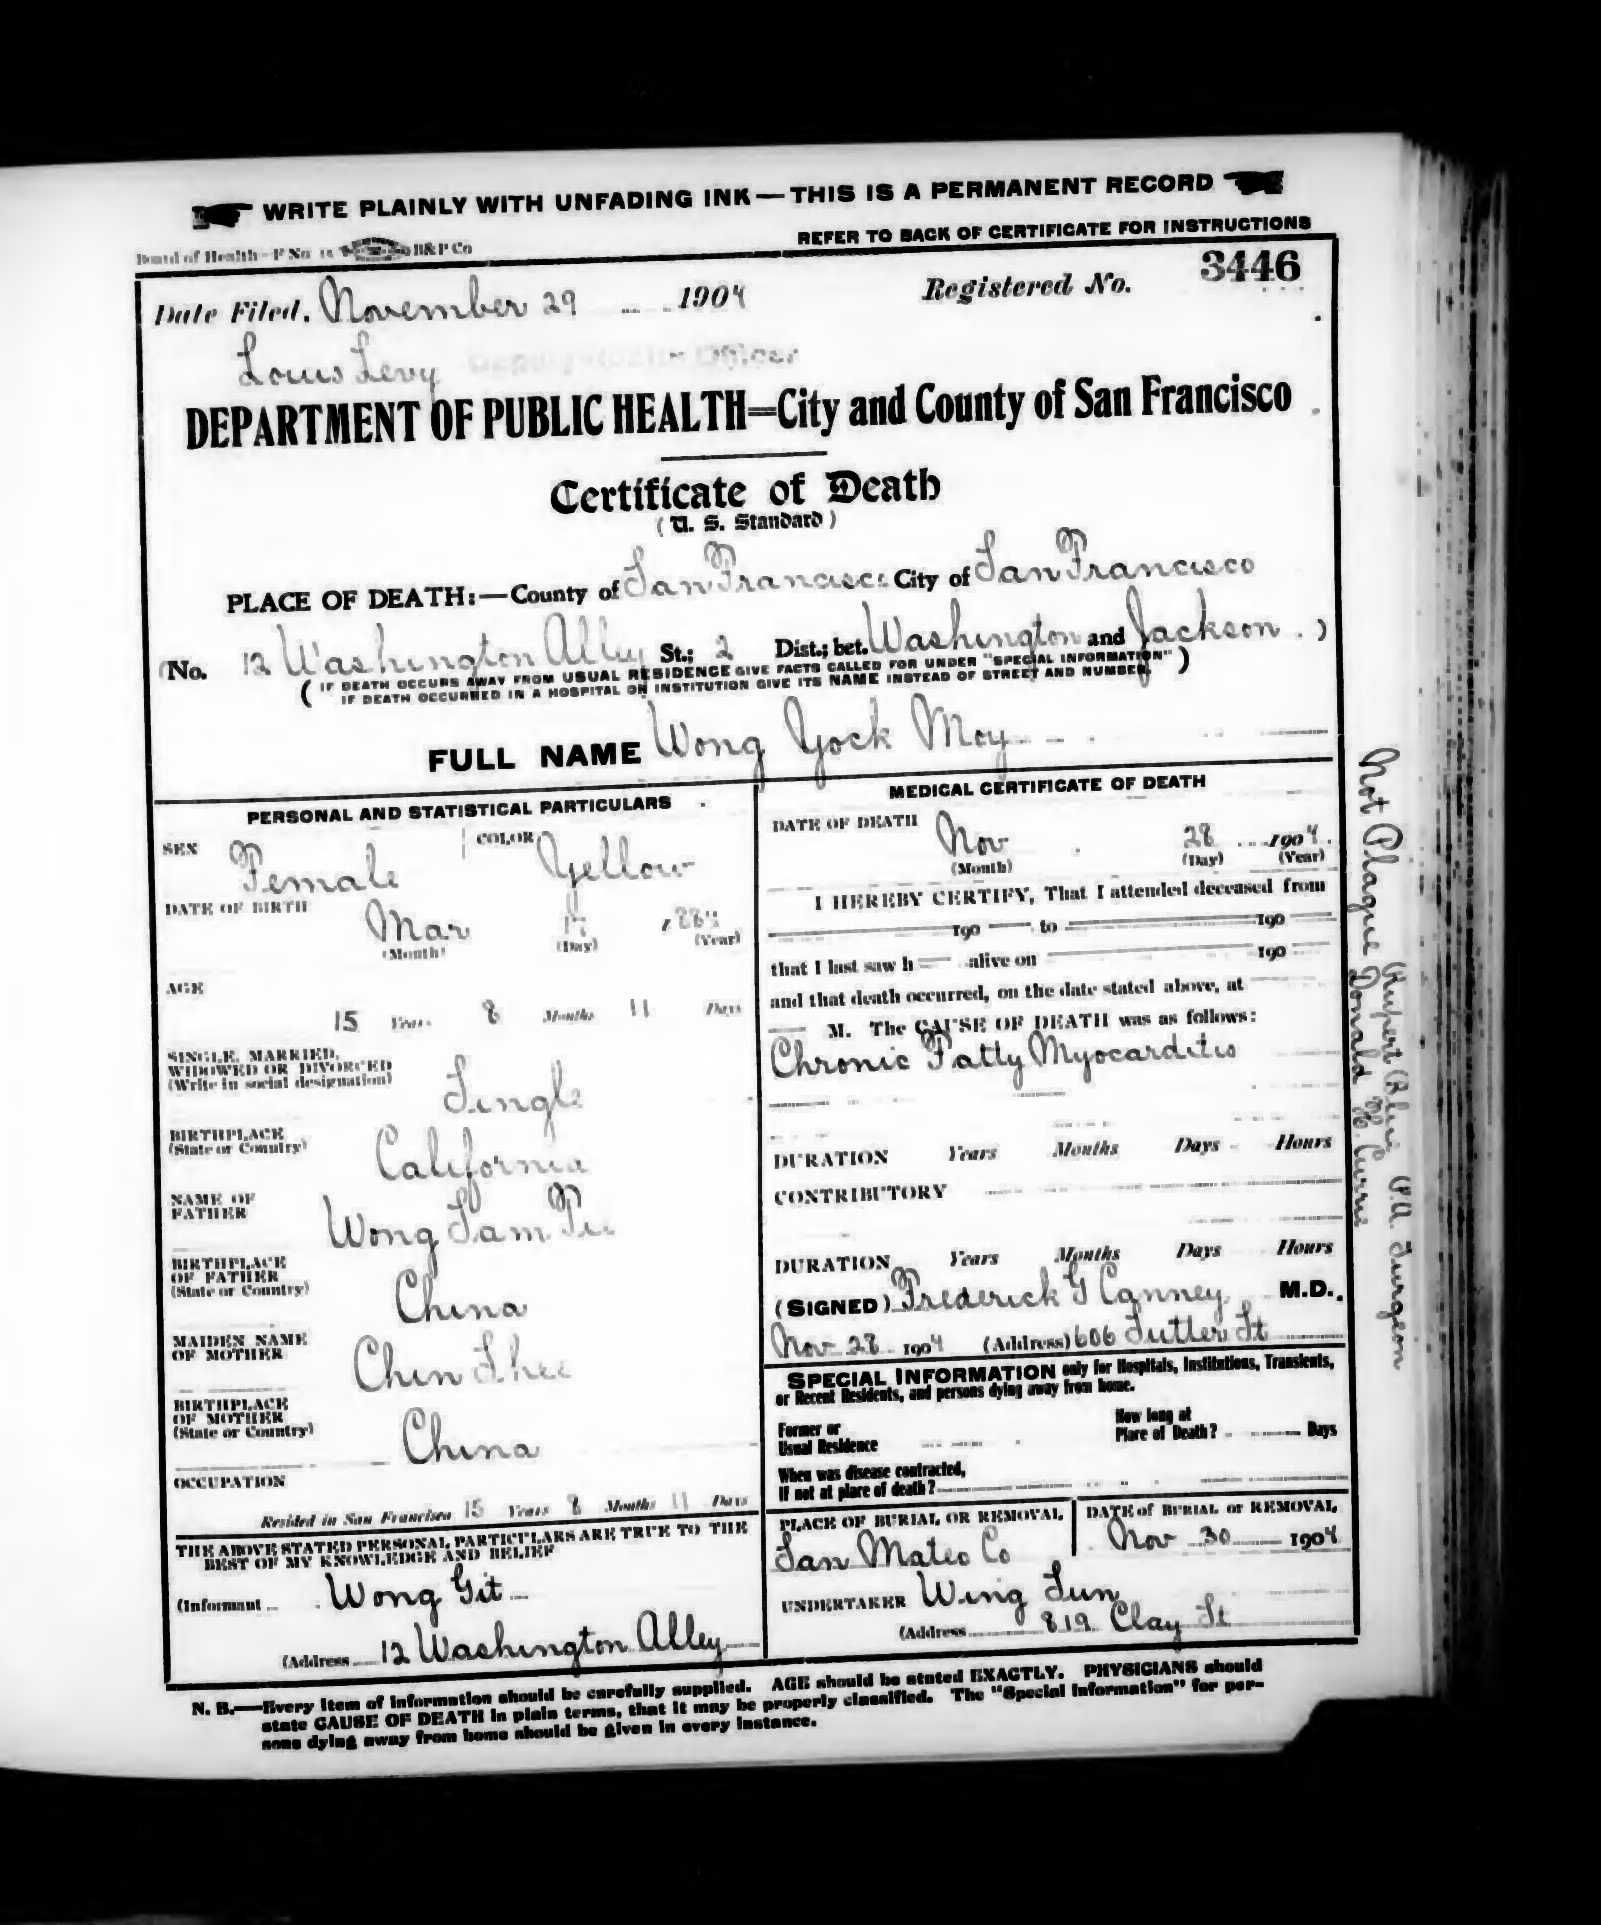 WRITE PLAINLY WITH UNFADING INK — THIS IS A PERMANENT RECORD
Board of Health—F No B&P Co
REFER TO BACK OF CERTIFICATE FOR INSTRUCTIONS
Date Filed, November 29 1904 Registered No. 3446
Louis Levy Deputy Health Officer
DEPARTMENT OF PUBLIC HEALTH=City and County of San Francisco
Certificate of Death
(U. S. Standard)
PLACE OF DEATH:—County of San Francisco City of San Francisco
(No. 12 Washington Alley St.; 2 Dist.; bet. Washington and Jackson.)
( IF DEATH OCCURS AWAY FROM USUAL RESIDENCE GIVE FACTS CALLED FOR UNDER "SPECIAL INFORMATION" )
IF DEATH OCCURRED IN A HOSPITAL OR INSTITUTION GIVE ITS NAME INSTEAD OF STREET AND NUMBER.
FULL NAME Wong Yock Moy
PERSONAL AND STATISTICAL PARTICULARS
SEX Female COLOR Yellow
DATE OF BIRTH Mar 17
(Month) (Day) (Year)
AGE
15 Years 8 Months 11 Days
SINGLE, MARRIED,
WIDOWED OR DIVORCED
(Write in social designation) Single
BIRTHPLACE
(State or Country) California
NAME OF
FATHER Wong Sam
BIRTHPLACE
OF FATHER
(State or Country) China
MAIDEN NAME
OF MOTHER Chin Shee
BIRTHPLACE
OF MOTHER
(State or Country) China
OCCUPATION
Resided in San Francisco 15 Years 8 Months 11 Days
THE ABOVE STATED PERSONAL PARTICULARS ARE TRUE TO THE
BEST OF MY KNOWLEDGE AND BELIEF
(Informant Wong Git
(Address 12 Washington Alley
MEDICAL CERTIFICATE OF DEATH
DATE OF DEATH Nov 28 1904
(Month) (Day) (Year)
I HEREBY CERTIFY, That I attended deceased from
190 to 190
that I last saw h alive on 190
and that death occurred, on the date stated above, at
M. The CAUSE OF DEATH was as follows:
Chronic Fatty Myocarditis
DURATION Years Months Days Hours
CONTRIBUTORY
DURATION Years Months Days Hours
(SIGNED) Frederick G Canney M.D.
Nov 28 1904 (Address) 606 Sutter St
SPECIAL INFORMATION only for Hospitals, Institutions, Transients,
or Recent Residents, and persons dying away from home.
Former or
Usual Residence
How long at
Place of Death? Days
When was disease contracted,
If not at place of death?
PLACE OF BURIAL OR REMOVAL
San Mateo Co
DATE of BURIAL or REMOVAL
Nov 30 1904
UNDERTAKER Wing Sun
(Address 819 Clay St
N. B.—Every item of information should be carefully supplied. AGE should be stated EXACTLY. PHYSICIANS should
state CAUSE OF DEATH in plain terms, that it may be properly classified. The "Special Information" for per-
sons dying away from home should be given in every instance.
Not Plague Donald H. Currie
Rupert Blue P.A. Surgeon